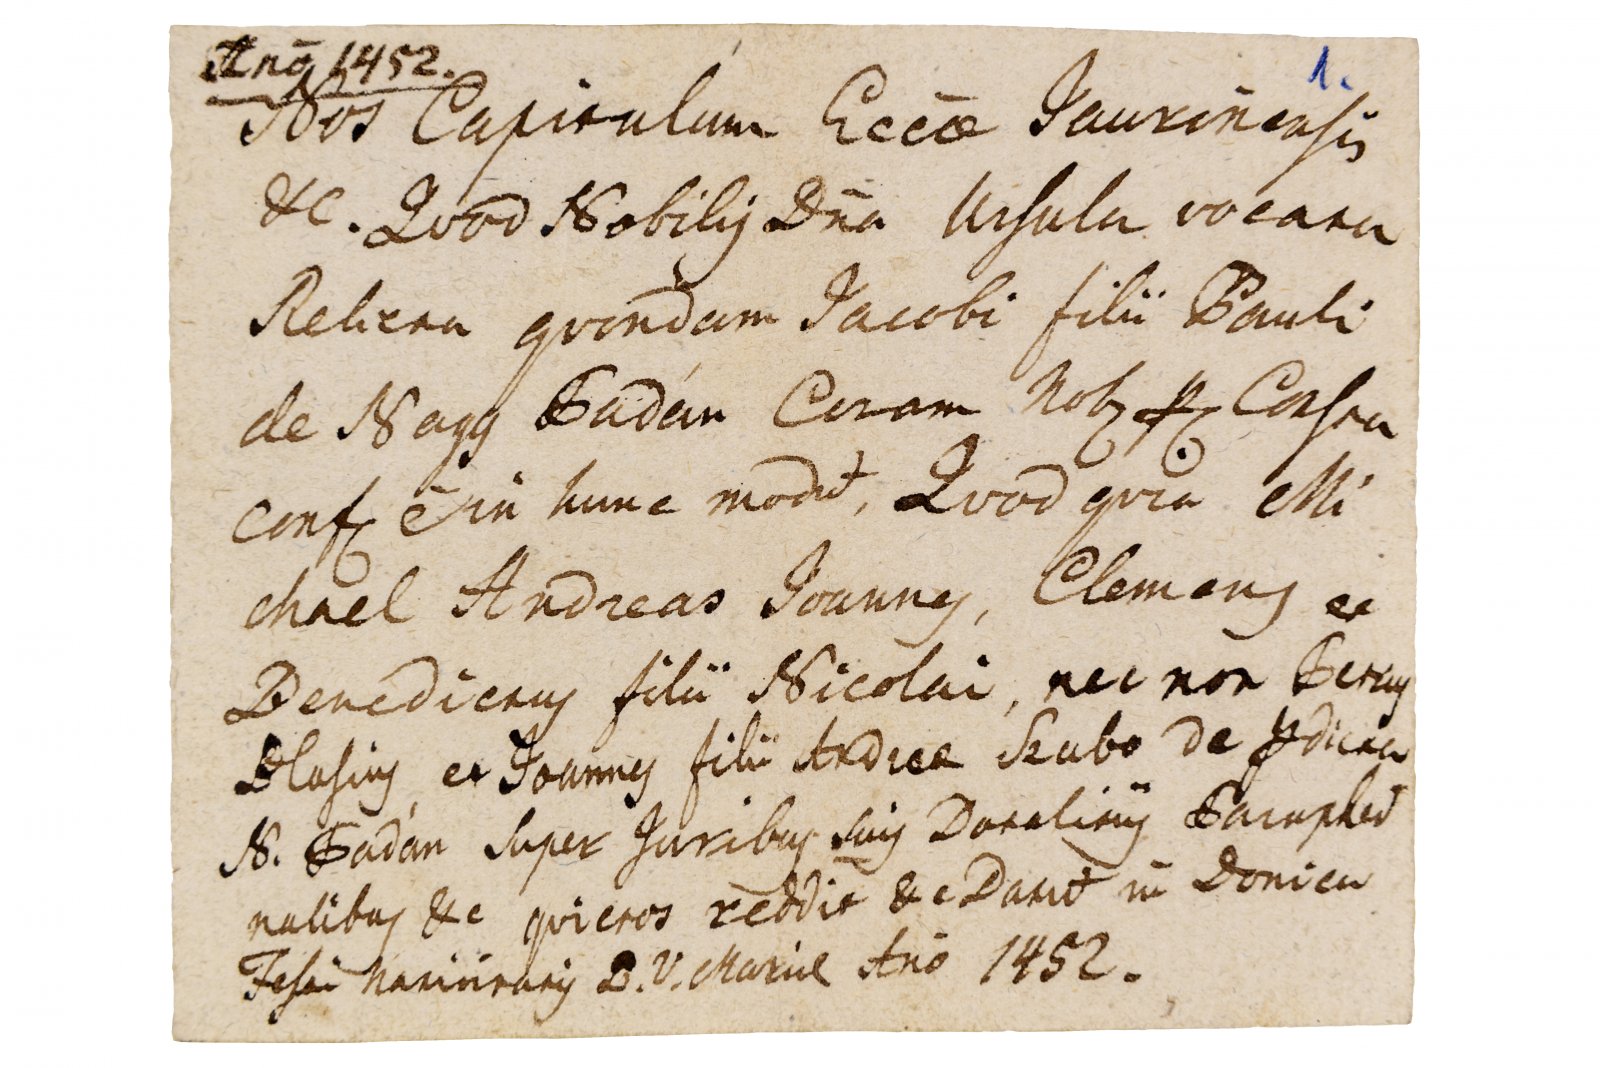 Anō 1452.
1.
Nos Capitulum Eccæ Jaurinensis
&c. Qvod Nobilis Dña Ursula vocata
Relicta qvondam Jacobi filii Pauli
de Nagy Padán Coram Nob
conf in hunc modū, Qvod qvia Mi
chael Andreas Joannes, Clemens et
Benedictus filii Nicolai, nec non Petrus
Blasius et Joannes filii Andreæ Szabo de
N. Padán super Juribus suis Dotalitiis Parapher
nalibus &c qvietos reddit &c Datū in Donica
Festi Nativitatis B. V. Mariæ Anō 1452.